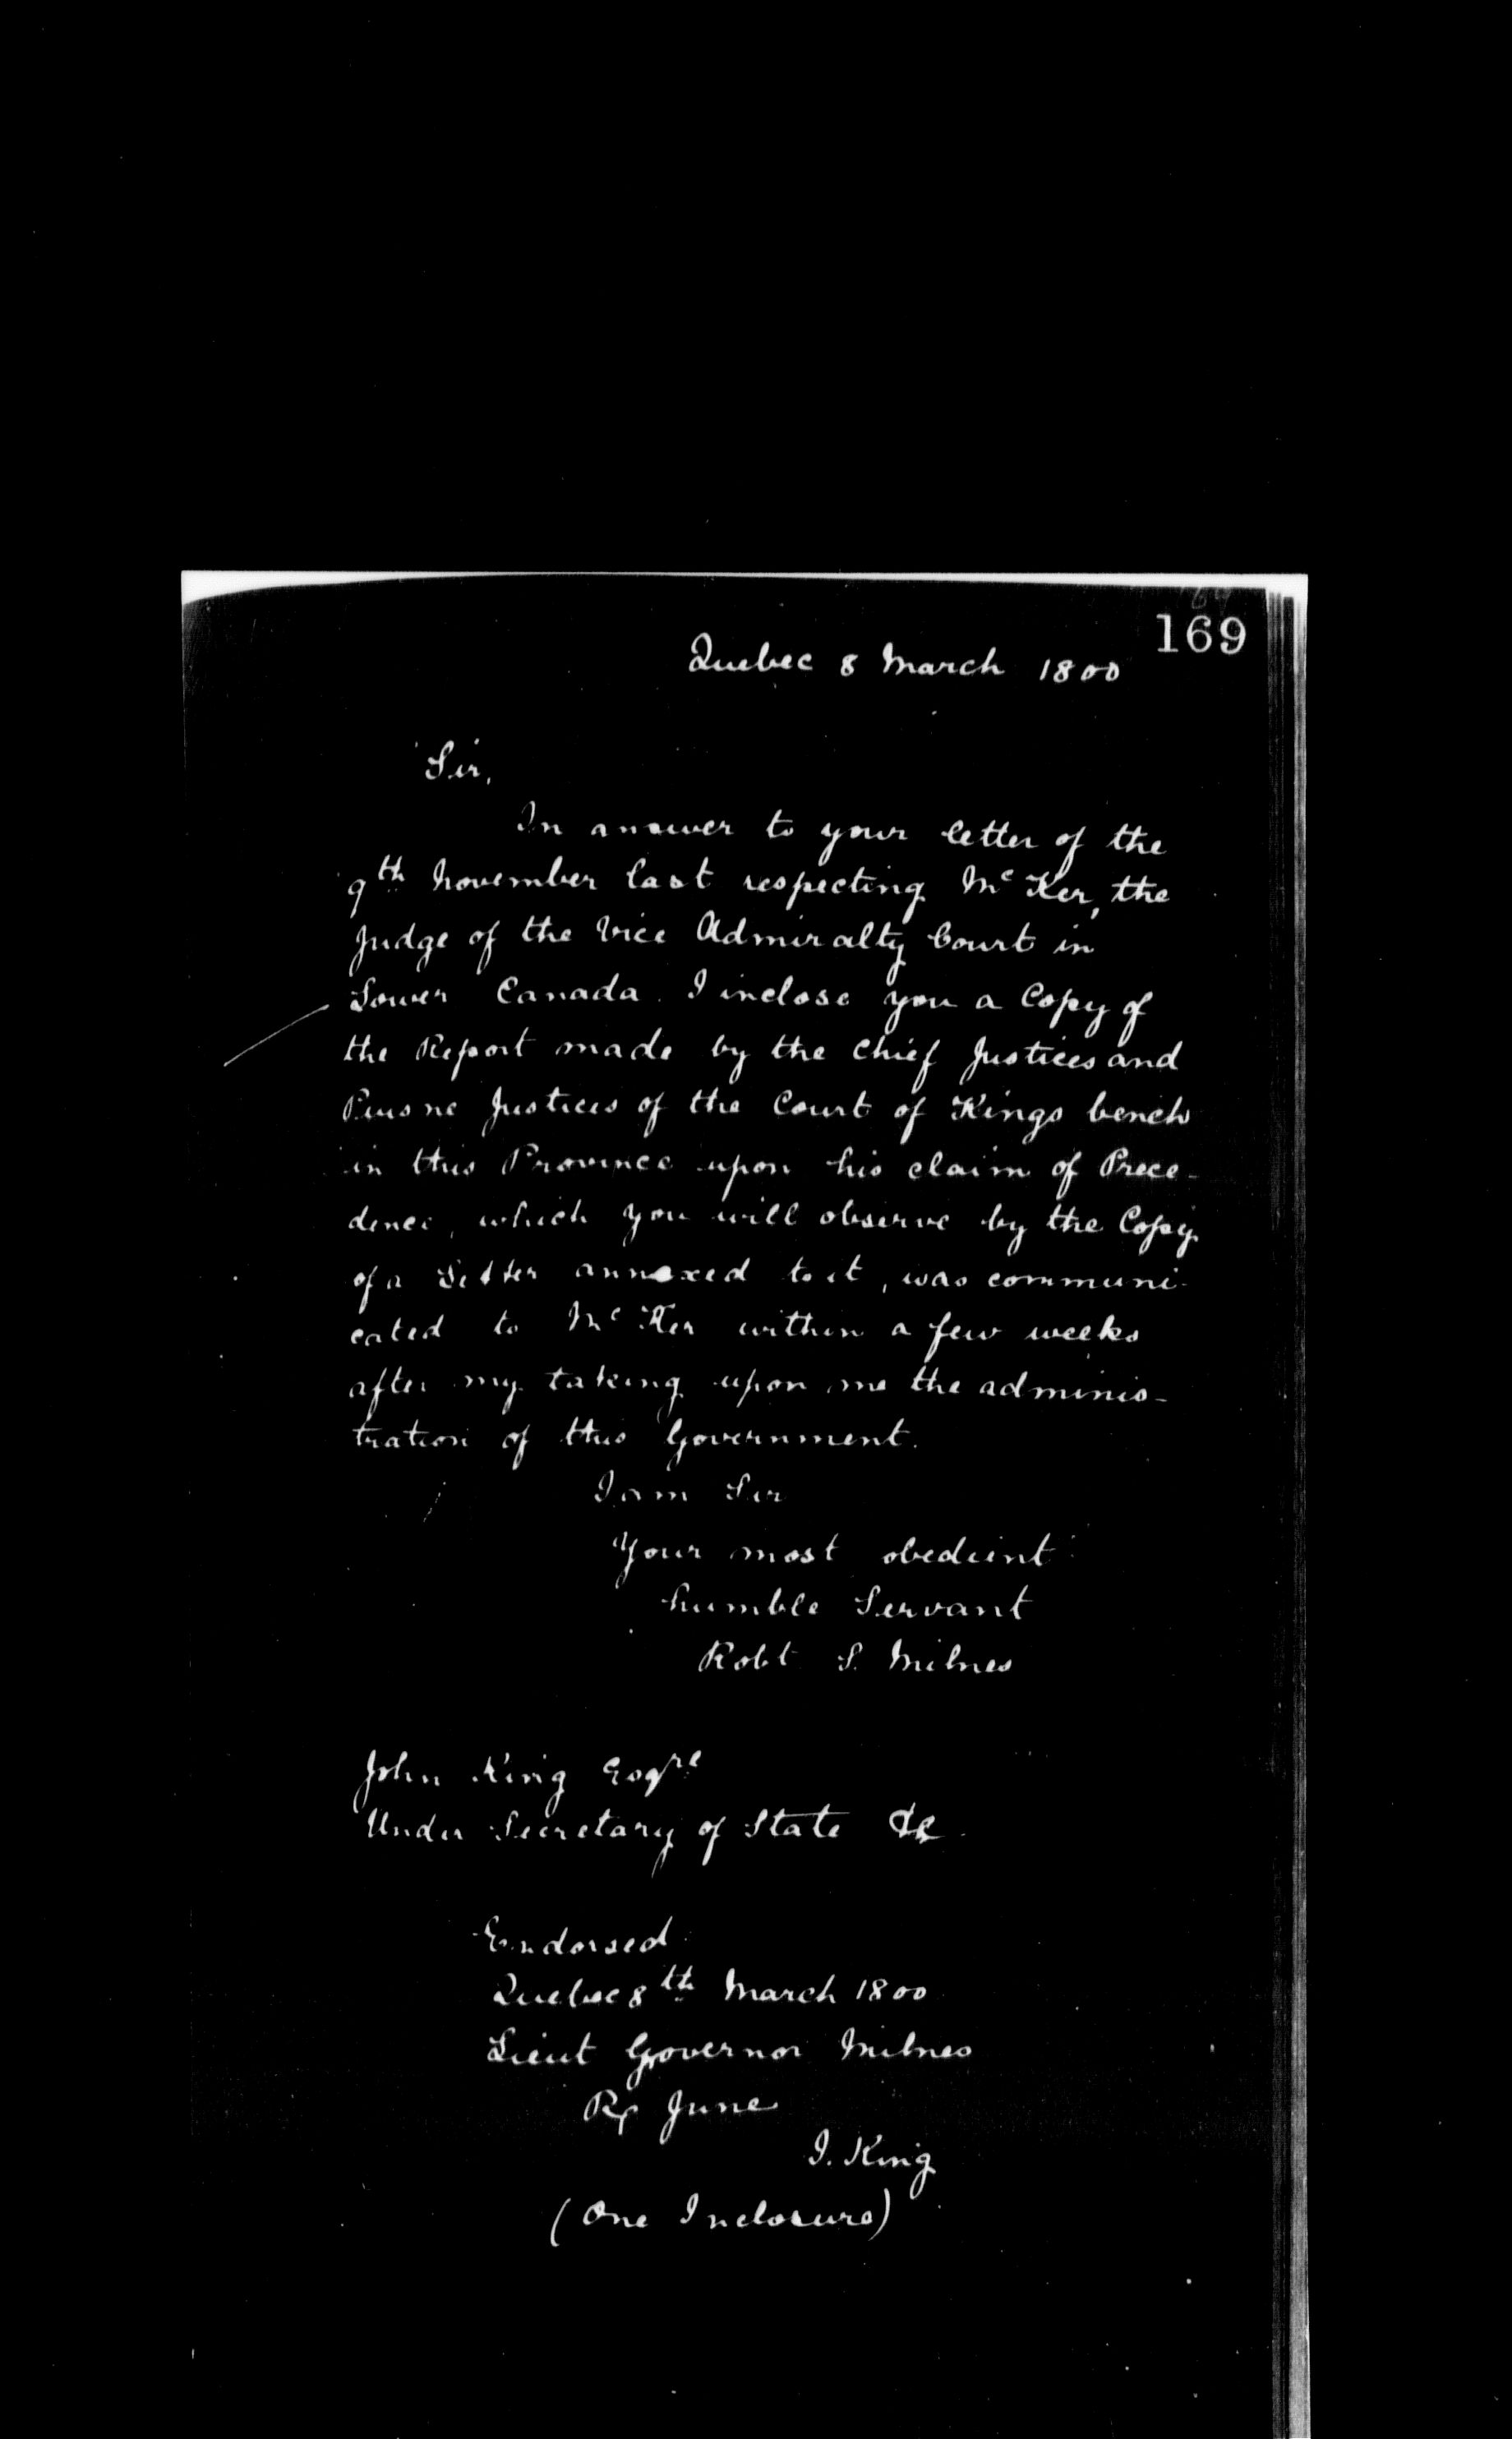 169
Quebec 8 March 1800
Sir,
In answer to your letter of the
9th November last respecting Mc Ker, the
Judge of the Vice Admiralty Court in
Lower Canada. I inclose you a Copy of
the Report made by the Chief Justices and
Puisne Justices of the Court of Kings bench
in this Province upon his claim of Prece-
dence, which you will observe by the Copy
of a Letter annexed to it, was communi-
cated to Mc Ker within a few weeks
after my taking upon me the adminis-
tration of this Government.
I am Sir
Your most obedient
humble Servant
Robt S. Milnes
John King Esqre
Under Secretary of State &c.
Endorsed
Quebec 8th March 1800
Lieut Governor Milnes
Rx June
J. King
(One Inclosure)